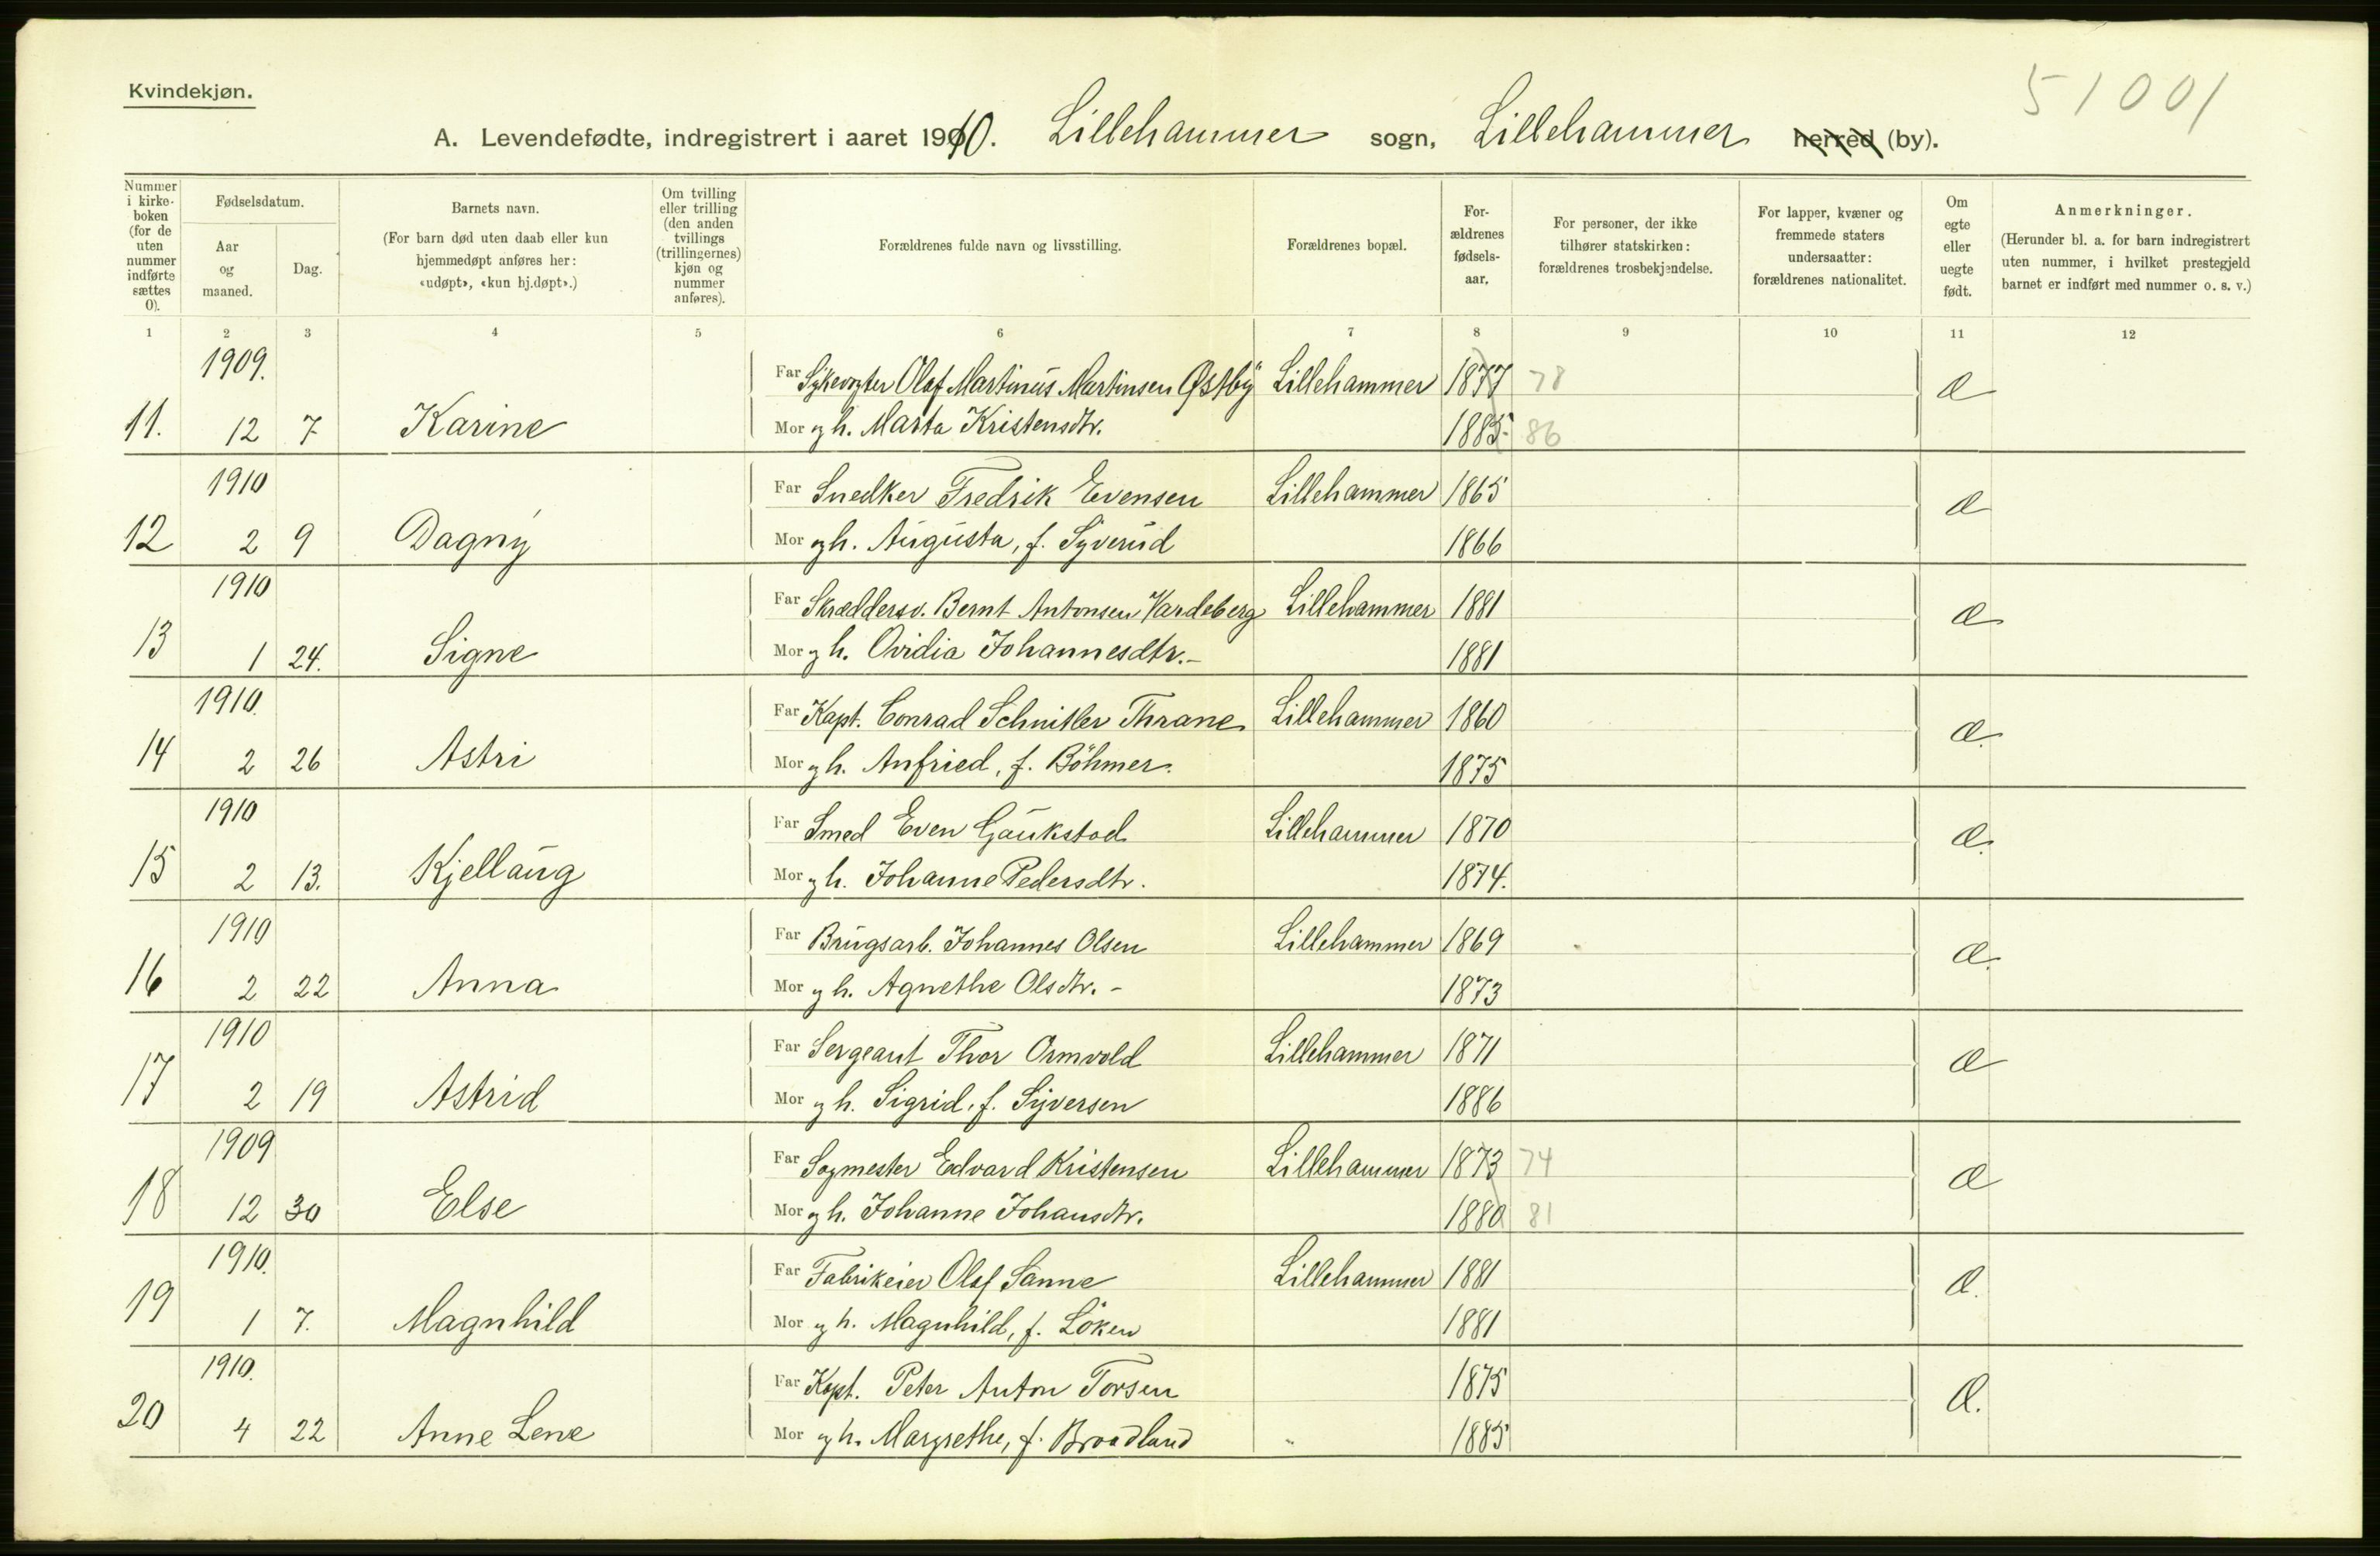 Kvindekjøn.
51001
A. Levendefødte, indregistrert i aaret 1910. Lillehammer sogn, Lillehammer herred (by).
Nummer i kirkeboken (for de uten nummer indførte sættes 0).
Fødselsdatum.
Aar og maaned.
Dag.
Barnets navn.
(For barn død uten daab eller kun hjemmedøpt anføres her: «udøpt», «kun hj.døpt».)
Om tvilling eller trilling (den anden tvillings (trillingernes) kjøn og nummer anføres).
Forældrenes fulde navn og livsstilling.
Forældrenes bopæl.
Forældrenes fødselsaar.
For personer, der ikke tilhører statskirken: forældrenes trosbekjendelse.
For lapper, kvæner og fremmede staters undersaatter: forældrenes nationalitet.
Om egte eller uegte født.
Anmerkninger.
(Herunder bl. a. for barn indregistrert uten nummer, i hvilket prestegjeld barnet er indført med nummer o. s. v.)
1 2 3 4 5 6 7 8 9 10 11 12
1909. Far Sykevogter Olaf Martinus Martinsen Østby Lillehammer 1877 78 Æ
11. 12 7 Karine Mor og h. Marta Kristensdtr. 1885 86
1910 Far Snedker Fredrik Evensen Lillehammer 1865 Æ
12 2 9 Dagny Mor og h. Augusta, f. Syverud 1866
1910 Far Skræddersv. Bernt Antonsen Vardeberg Lillehammer 1881 Æ
13 1 24. Signe Mor og h. Ovidia Johannesdtr.- 1881
1910. Far Kapt. Conrad Schnitler Thrane Lillehammer 1860 Æ.
14 2 26 Astri Mor og h. Anfried, f. Böhmer. 1875
1910 Far Smed Even Gaukstad Lillehammer 1870 Æ.
15 2 13. Kjellaug Mor og h. Johanne Pedersdtr. 1874.
1910 Far Brugsarb. Johannes Olsen Lillehammer 1869 Æ.
16 2 22 Anna Mor og h. Agnethe Olsdtr. - 1873
1910 Far Sergeant Thor Ormvold Lillehammer 1871 Æ
17 2 19 Astrid Mor og h. Sigrid, f. Syversen 1886
1909 Far Sagmester Edvard Kristensen Lillehammer 1873 74 Æ
18 12 30 Else Mor og h. Johanne Johansdtr. 1880 81
1910. Far Fabrikeier Olaf Sanne Lillehammer 1881 Æ.
19 1 7. Magnhild Mor og h. Magnhild, f. Löken 1881
1910. Far Kapt. Peter Anton Torsen 1875 Æ.
20 4 22 Anne Lene Mor og h. Margrethe, f. Broadland „ 1885